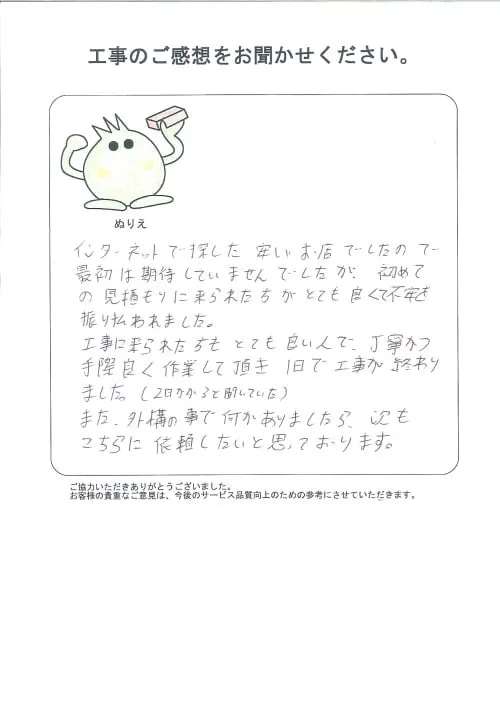 工事のご感想をお聞かせください。
ぬりえ
インターネットで探した 安いお店でしたので
最初は期待していませんでしたが、初めて
の見積もりに来られた方がとても良くて不安を
振り払われました。
工事に来られた方もとても良い人で、丁寧かつ
手際良く作業して頂き 1日で工事が終わり
ました。(2日かかると聞いていた)
また、外構の事で何かありましたら、次も
こちらに依頼したいと思っております。
ご協力いただきありがとうございました。
お客様の貴重なご意見は、今後のサービス品質向上のための参考にさせていただきます。